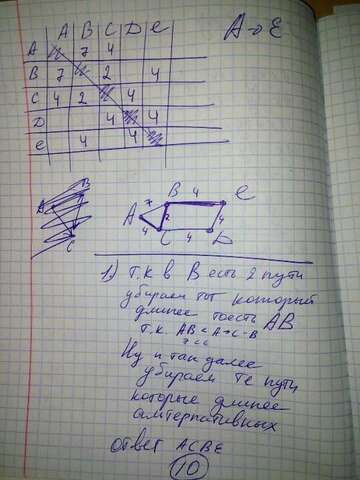 A B C D E
A → E
A 7 4
B 7 2 4
C 4 2 4
D 4 4
e 4 4
B 4 e
7
A 2 4
4 C 4 D
1) т.к в B есть 2 пути
убираем тот который
длинее тоесть AB
т.к. AB < A→C-B
Ну и так далее
убираем те пути
которые длинее
альтернативных
ответ ACBE
10